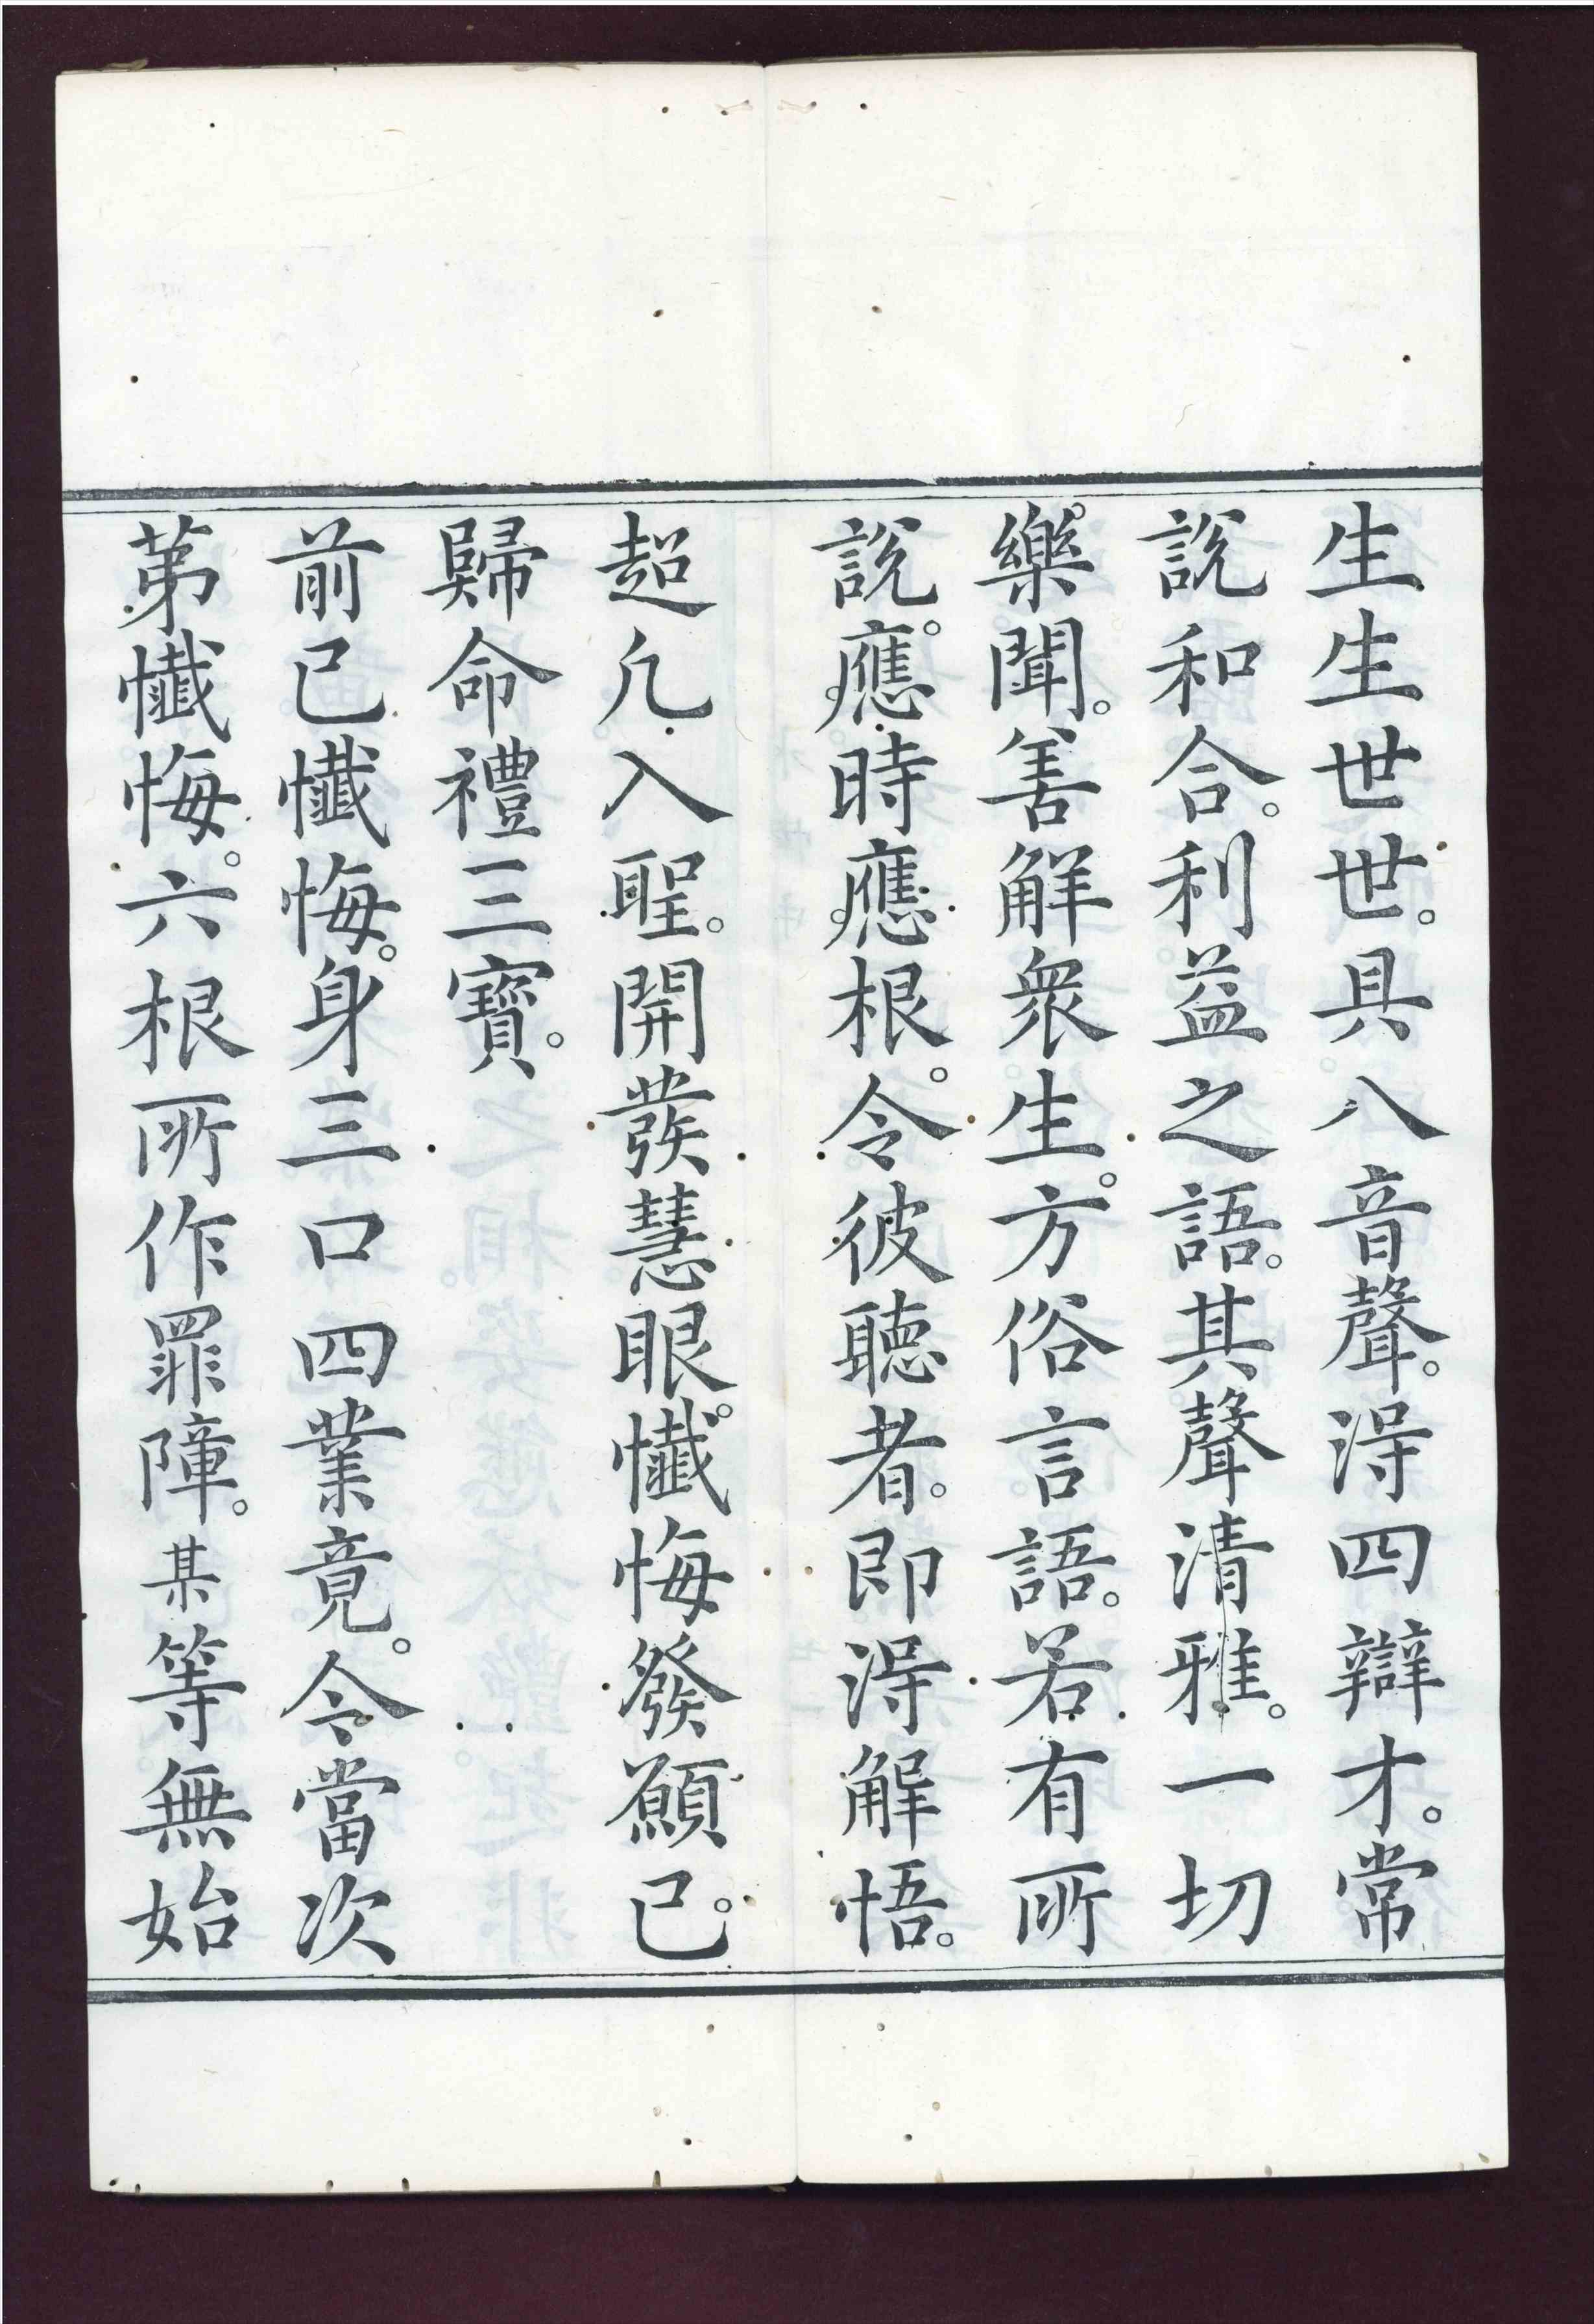 生生世世。具八音聲。得四辯才。常
說和合。利益之語。其聲清雅。一切
樂聞。善解衆生。方俗言語。若有所
說。應時應根。令彼聽者。即得解悟。
超凡入聖。開發慧眼。懺悔發願已。
歸命禮三寶。
前已懺悔。身三口四業竟。今當次
第懺悔。六根所作罪障。某等無始